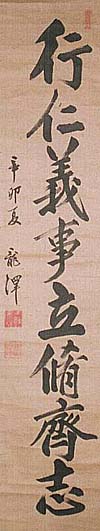 行仁義事立脩齊志
辛卯夏 龍澤